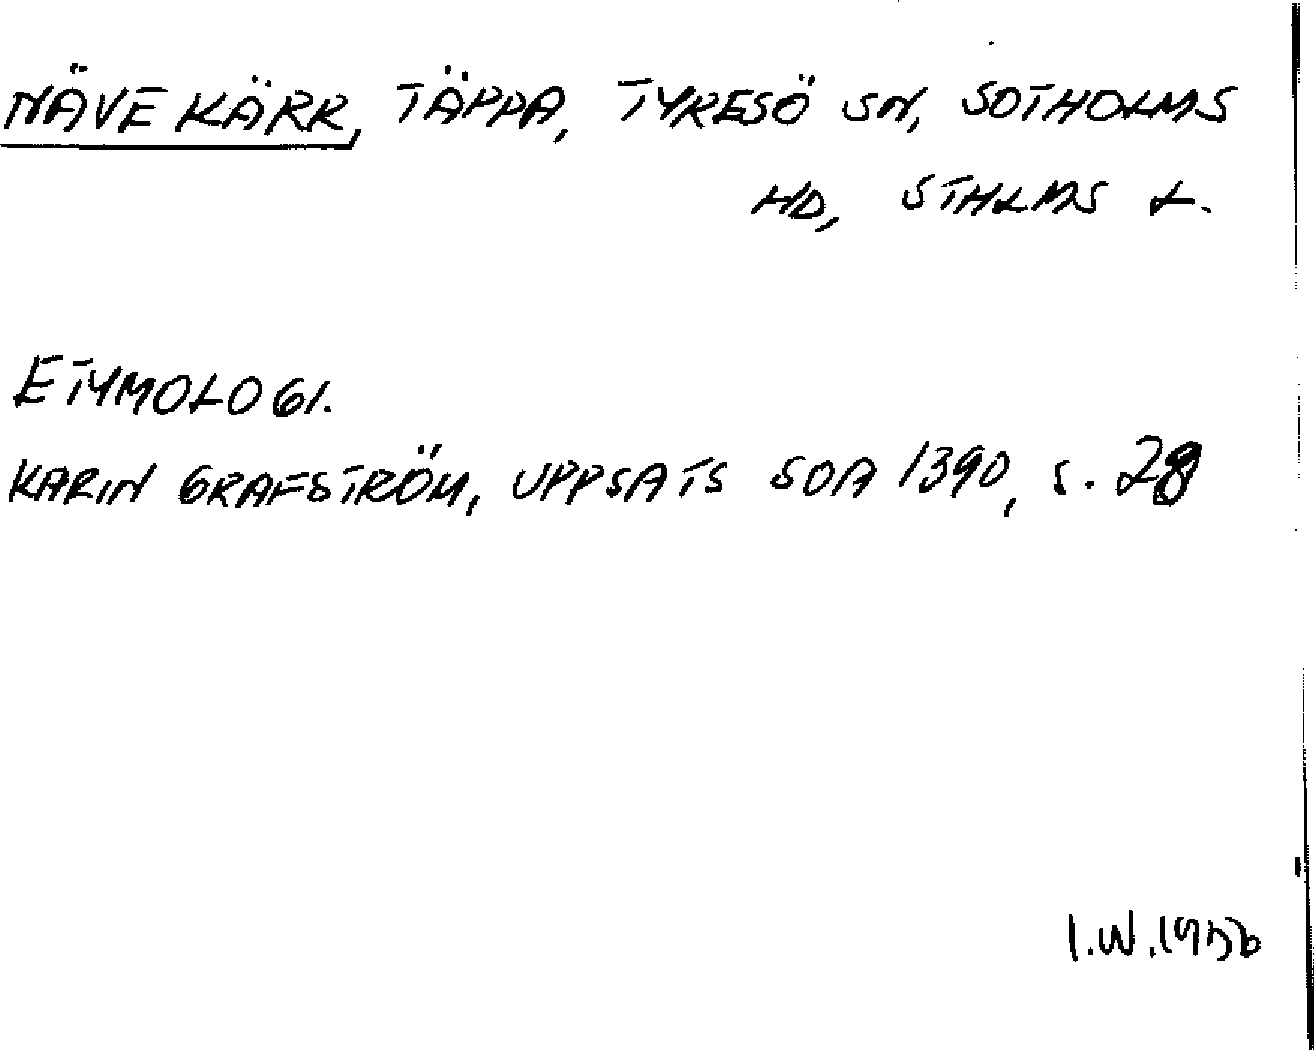 NÄVEKÄRR, TÄPPA, TYRESÖ SN, SOTHOLMS
HD, STHLMS L.
ETYMOLOGI.
KARIN GRAFSTRÖM, UPPSATS SOA 1390, s. 28
I.W.